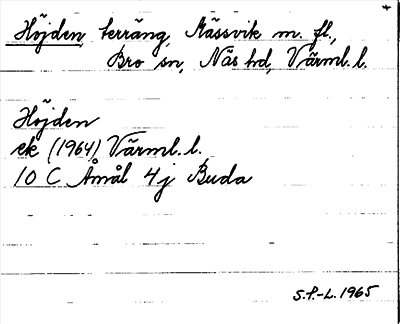 Höjden, terräng, Nässvik m. fl.,
Bro sn, Näs hd, Värml. l.
Höjden
ek (1964) Värml. l.
10 C Åmål 4j Buda
S.P.-L. 1965